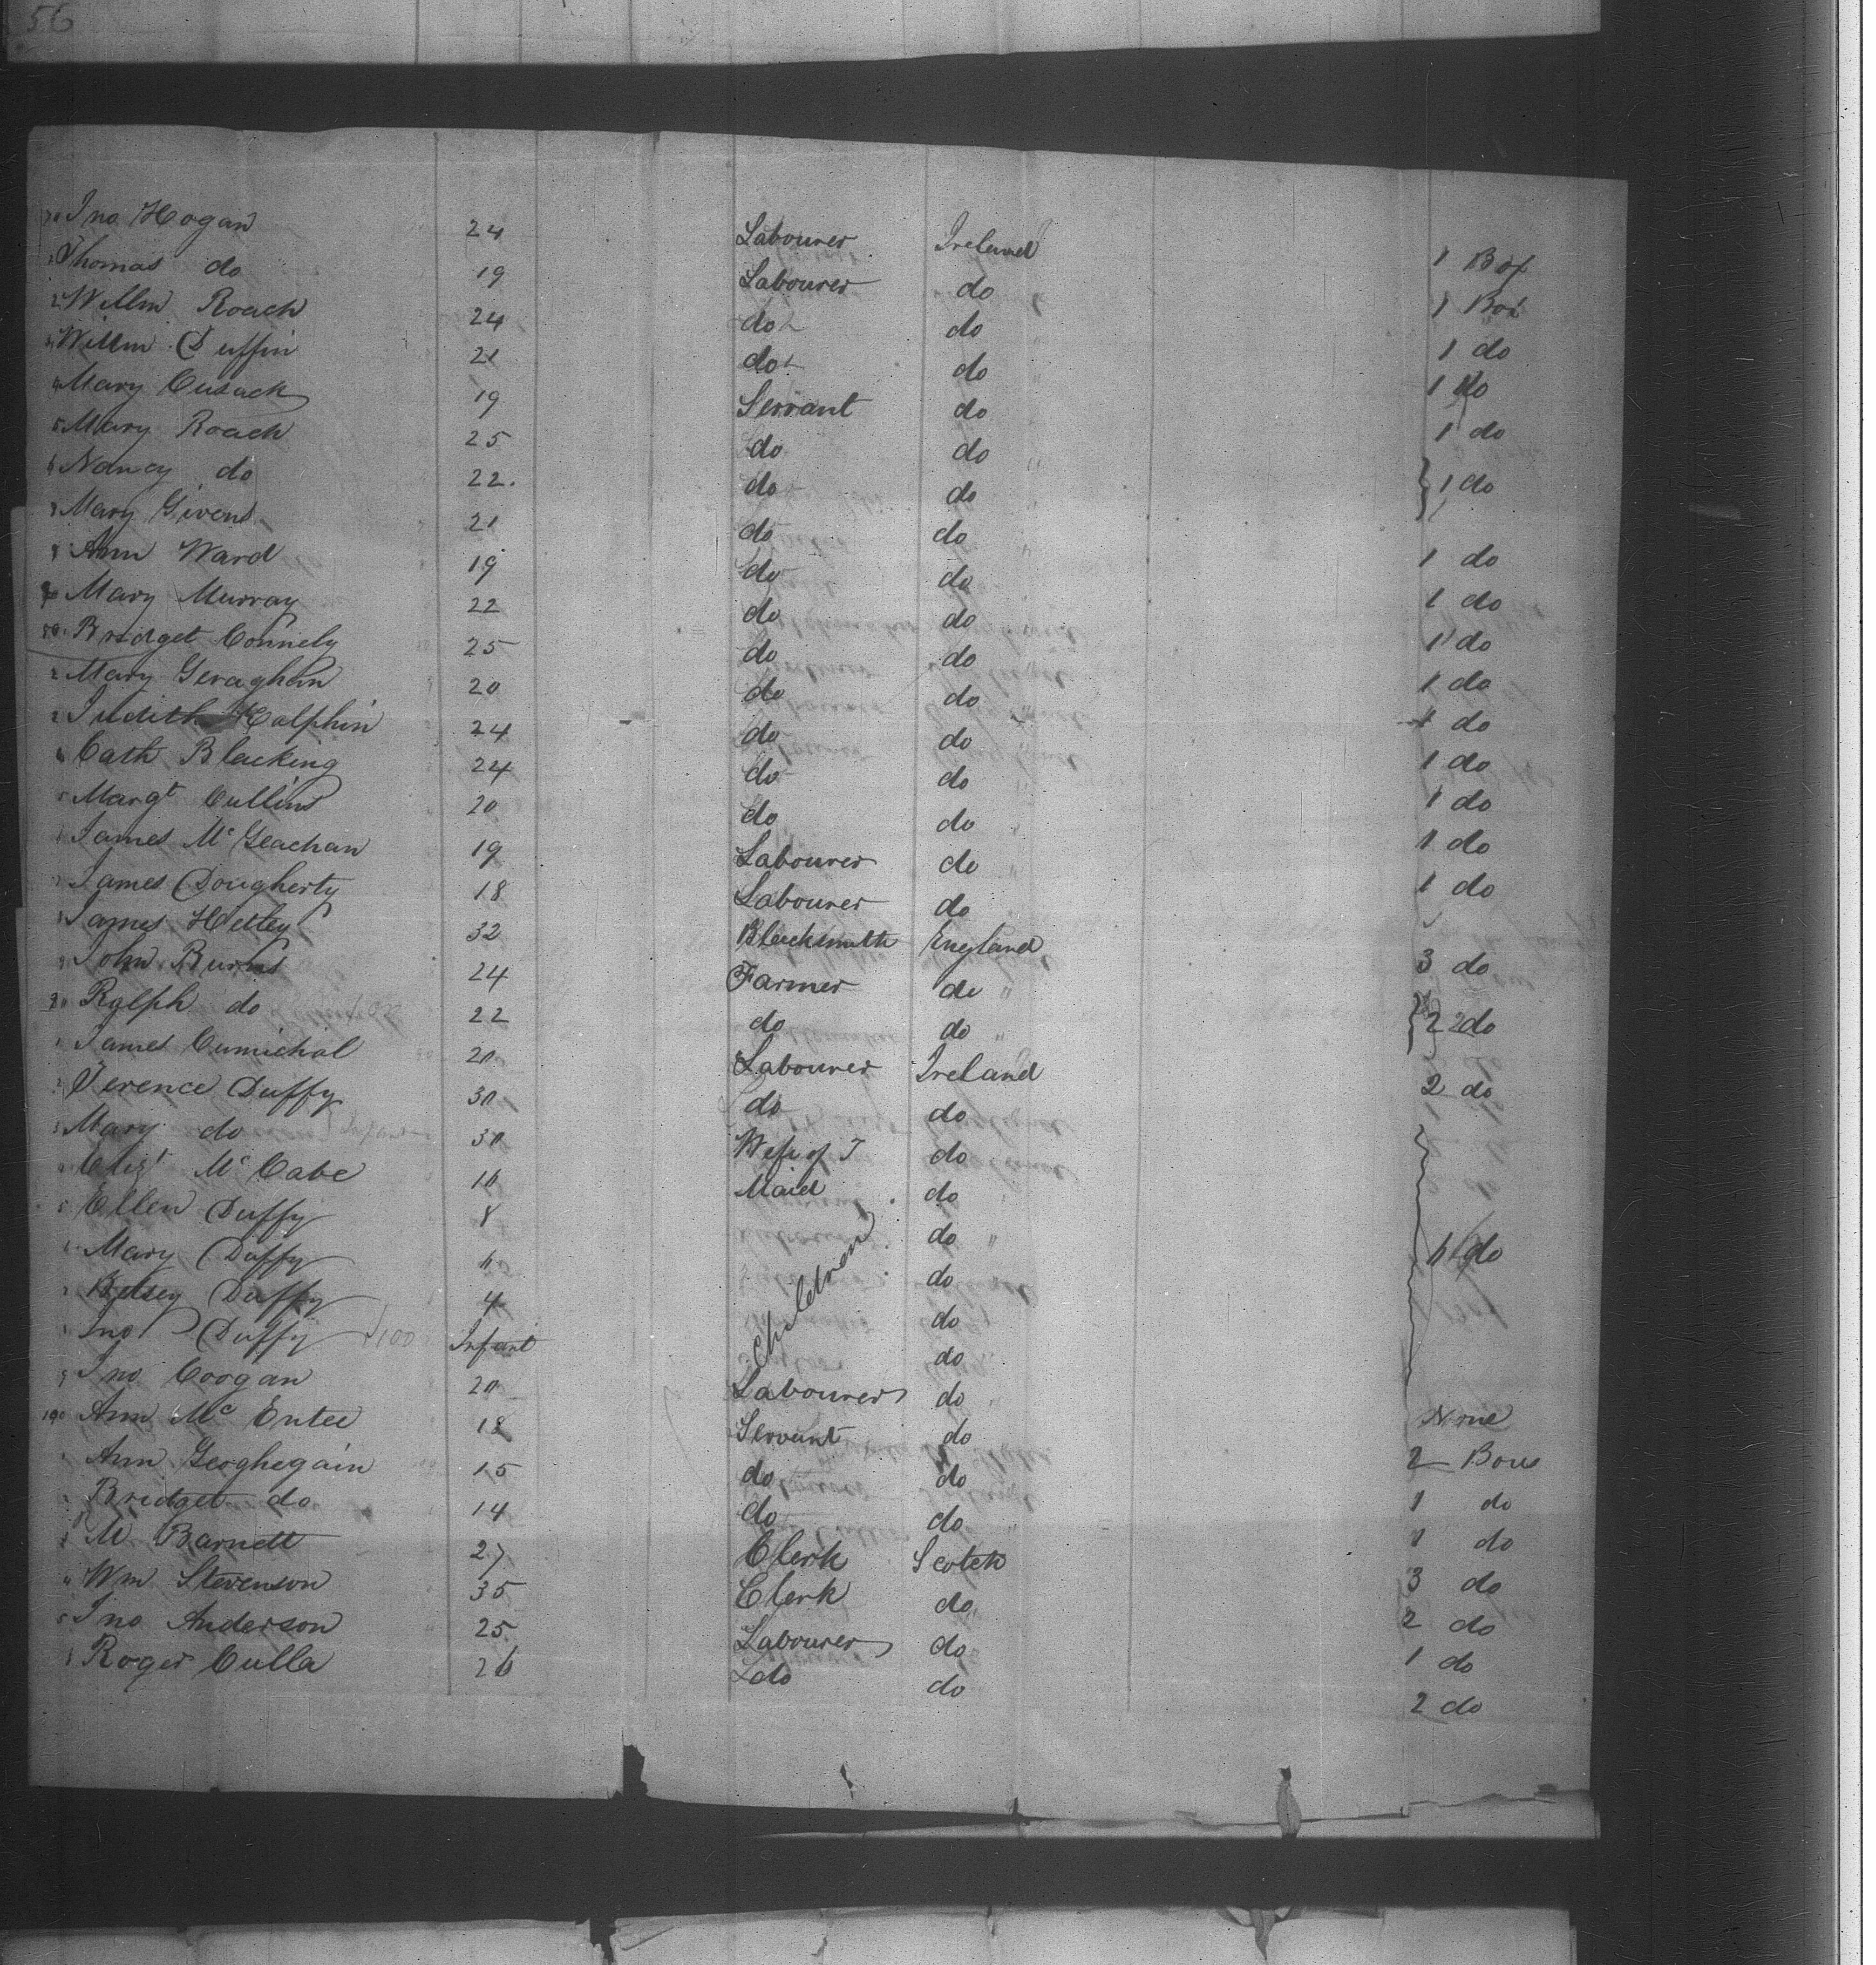 56
Jno Hogan 24 Labourer Ireland 1 Box
Thomas do 19 Labourer do 1 Box
Willm Roach 24 do do 1 do
Willm Duffin 21 do do 1 do
Mary Cusack 19 Servant do 1 do
Mary Roach 25 do do
Nancy do 22. do do } 1 do
Mary Givens 21 do do 1 do
Ann Ward 19 do do 1 do
Mary Murray 22 do do 1 do
Bridget Connely 25 do do 1 do
Mary Geraghan 20 do do 1 do
Judith Halphin 24 do do 1 do
Cath Blacking 24 do do 1 do
Margt Cullins 20 do do 1 do
James Mc Geachan 19 Labourer do 1 do
James Dougherty 18 Labourer do
James Hetley 32 Blacksmith England 3 do
John Burns 24 Farmer do
Ralph do 22 do do } 2 do
James Cumichal 20 Labourer Ireland 2 do
Terence Duffy 30 do do
Mary do 30 Wife of T do
Mc Cabe 16 Maid do
Ellen Duffy 8 Children do
Mary Duffy 6 do 6 do
Betsey Duffy 4 do
Jno Duffy Infant do
Jno Coogan 20 Labourer do None
190 Ann Mc Entee 18 Servant do 2 Boxes
Ann Geoghegain 15 do do 1 do
Bridget do 14 do do 1 do
M Barnett 27 Clerk Scotch 3 do
Wm Stevenson 35 Clerk do 2 do
Jno Anderson 25 Labourer do 1 do
Roger Culla 26 do do 2 do